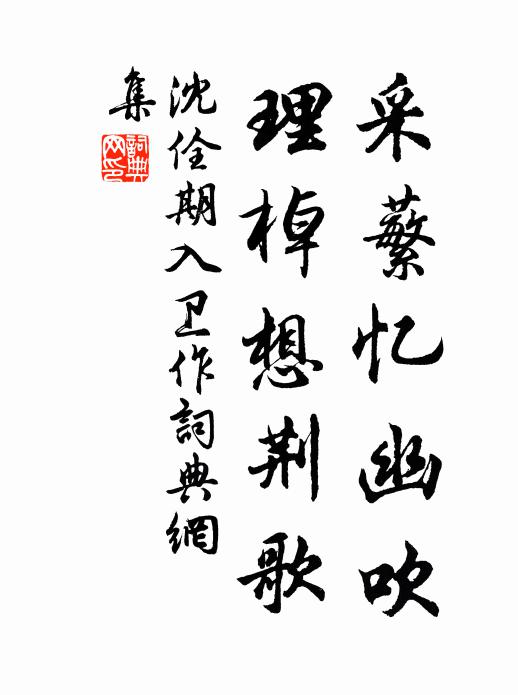 采蘩忆幽吹
理棹想荆歌
沈佺期入卫作詞典網
集
詞典
网印